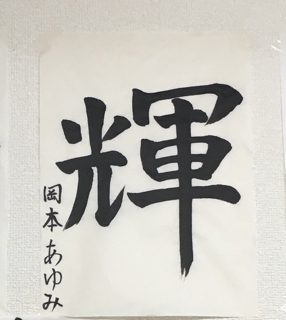 輝
岡本あゆみ